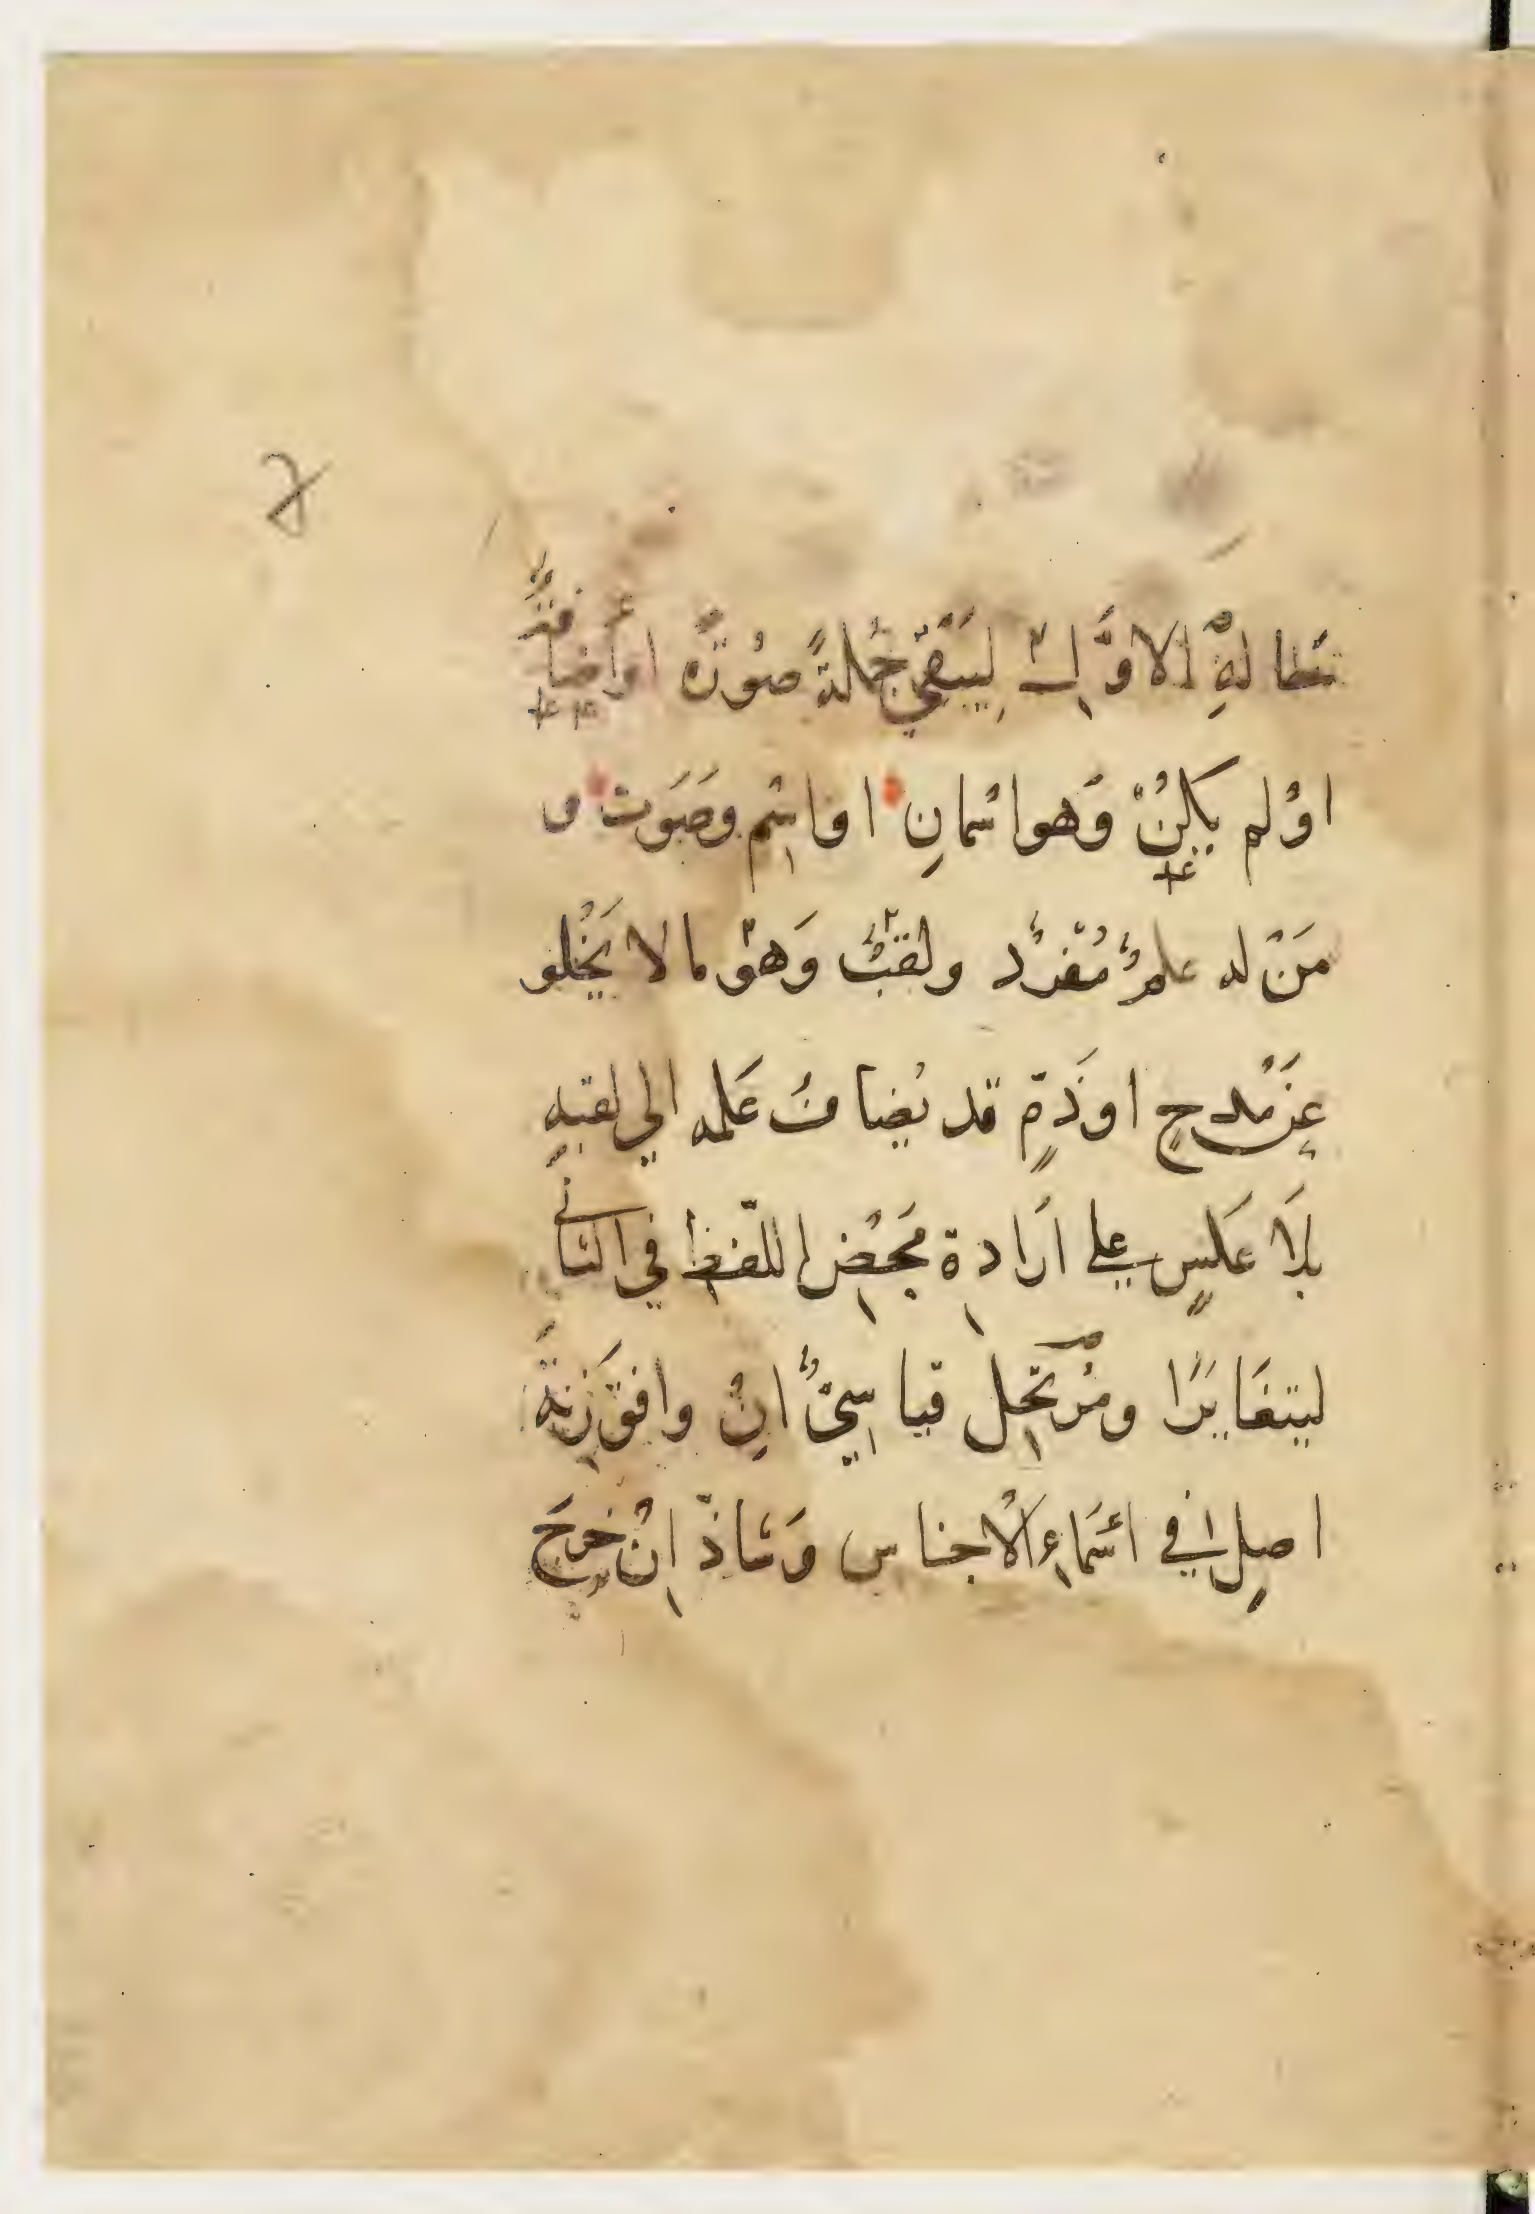 حطا لهِ الاوَّلِ لِيَبْقىَ جُملةً صُورَة اوأضافةً
اوْلم يكنْ وَهواسْمانِ اوفاسْم وصَوت و
مَنْ له علمٌ مُفْرَد ولقبٌ وَهْوَ مالا يَخْلو
عِن مَدحٍ اوذَمٍّ قد يُضافُ عَلمه الي لقبهِ
بلاَ عَكسٍ علي ارَادةِ مَحْضِ اللّفظِ في الثاني
ليتغَايرَا ومُرْتَجِل قياسِيٌّ انْ وافق زِنةَ
اصلٍ في اسْمَاءِ الاجناس وَشاذّ اِنْ خرجَ